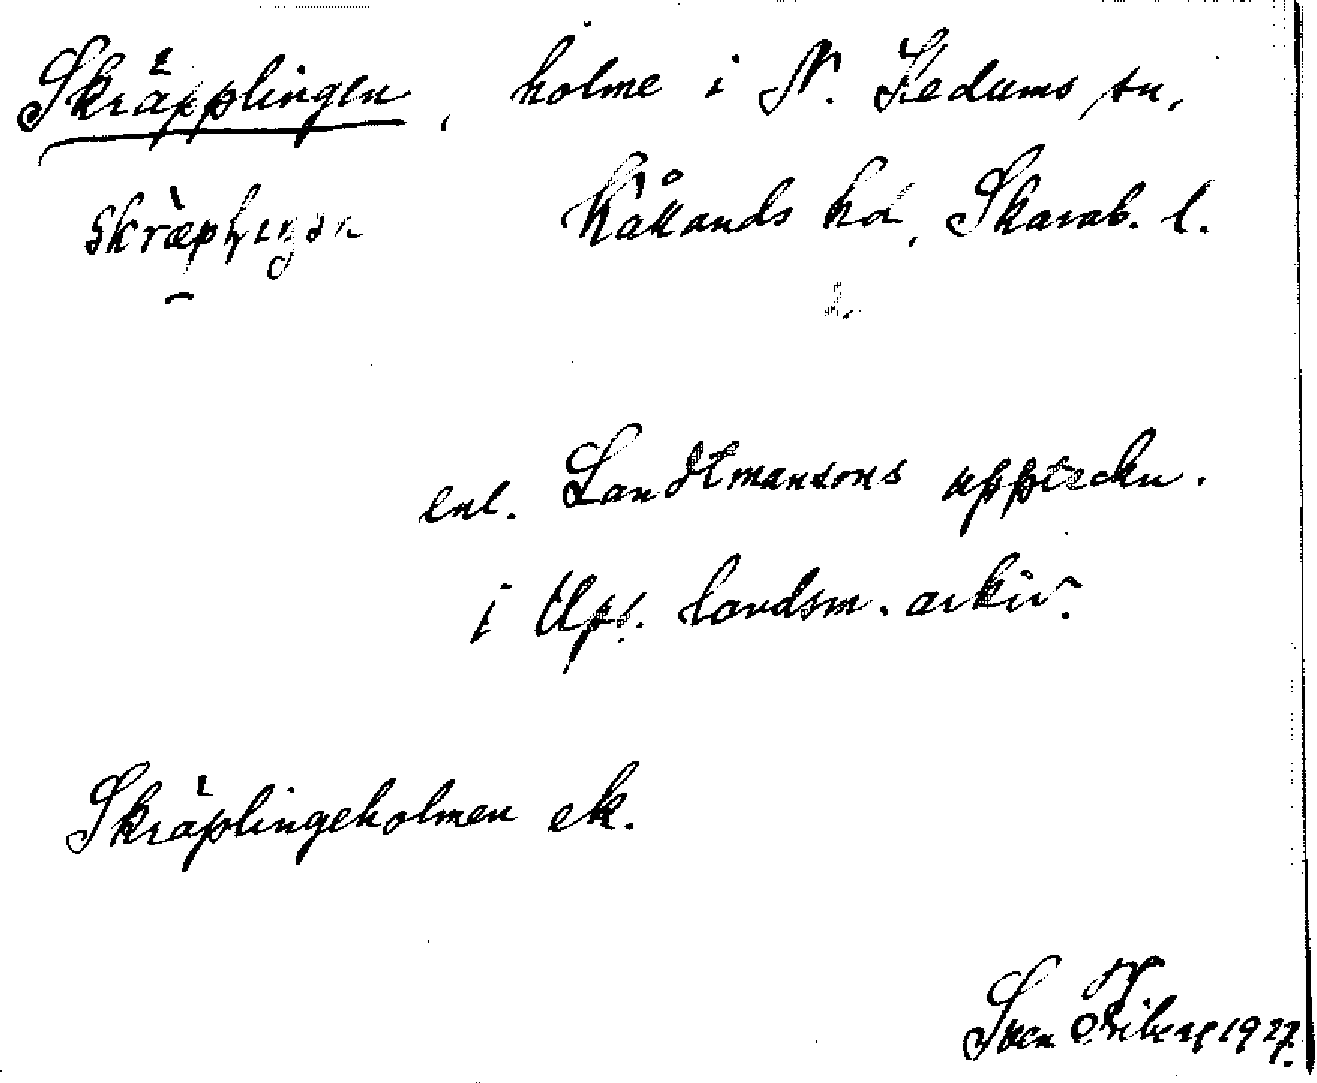 Skräpplingen, holme i N. Kedums sn,
Kållands hd, Skarab. l.
enl. Landtmansons uppteckn.
i Ups. landsm. arkiv.
Skräplingeholmen ek.
Sven Friberg 1927.